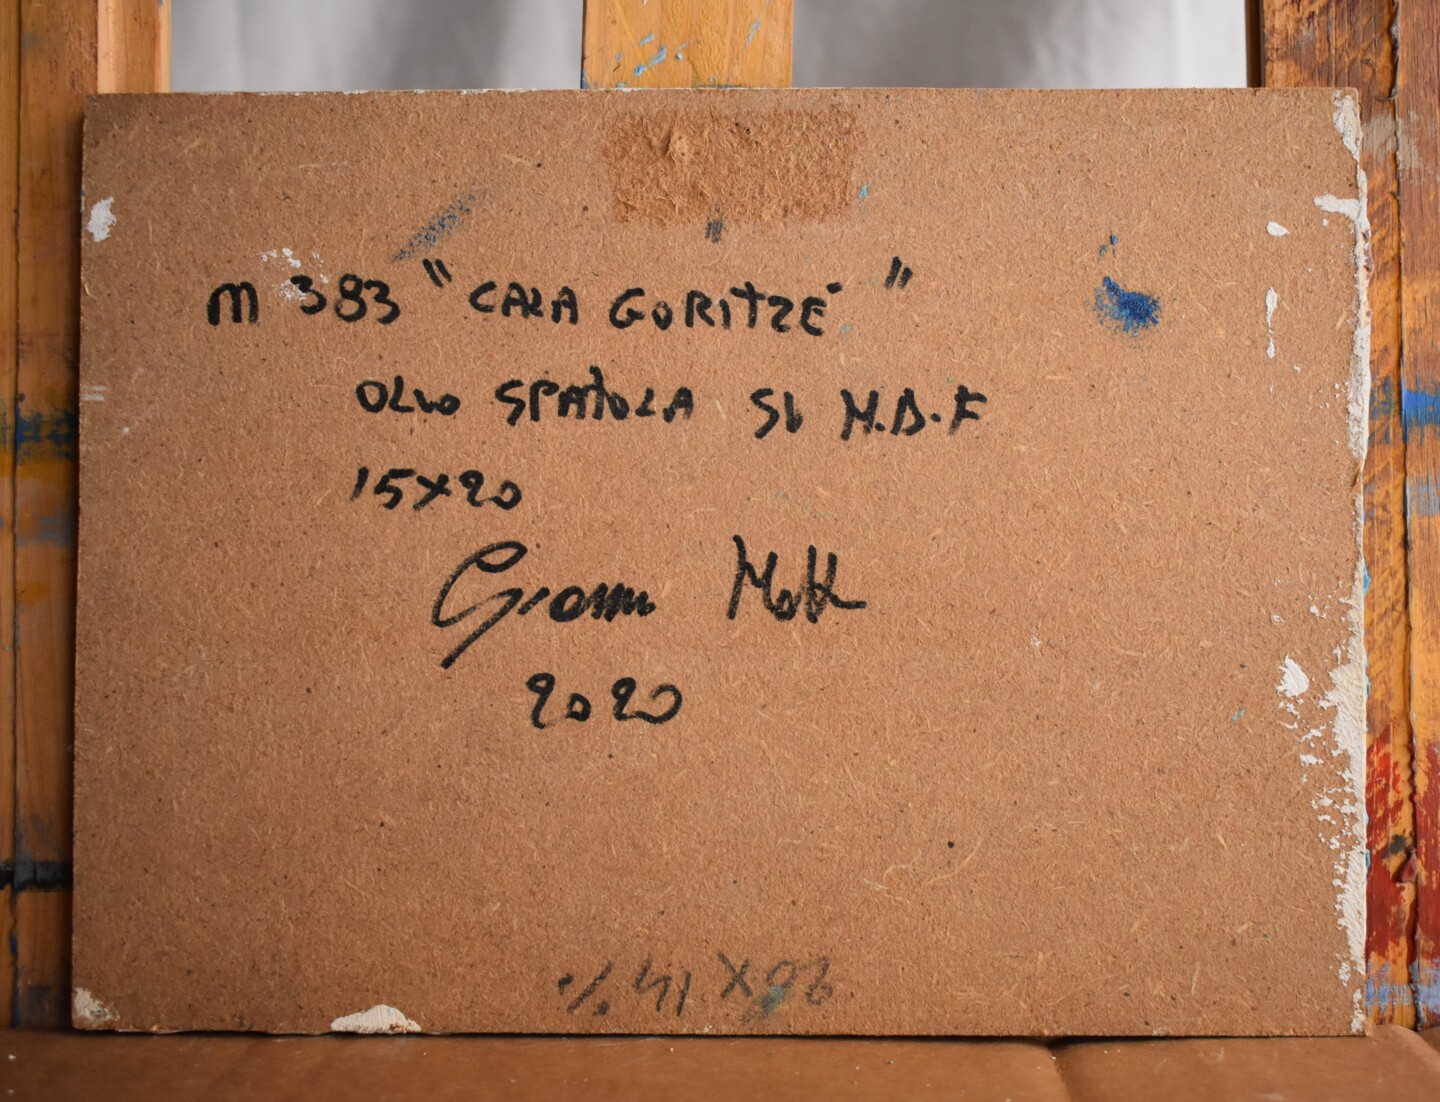 m 383 "CALA GORITZE'"
OLIO SPATOLA SU M.D.F
15X20
Gianni Mott
2020